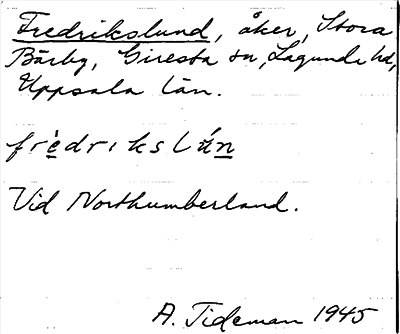 Fredrikslund, åker, Stora
Bärby, Giresta sn, Lagunda hd,
Uppsala län.
frèdrikslún
Vid Northumberland.
A. Tideman 1945